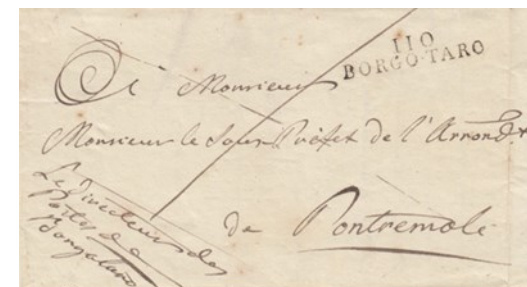 110
BORGO-TARO
A Monsieur
Monsieur le Sous Préfet de l'Arrond.t
de Pontremoli
Le Directeur des
Postes de
Borgotaro